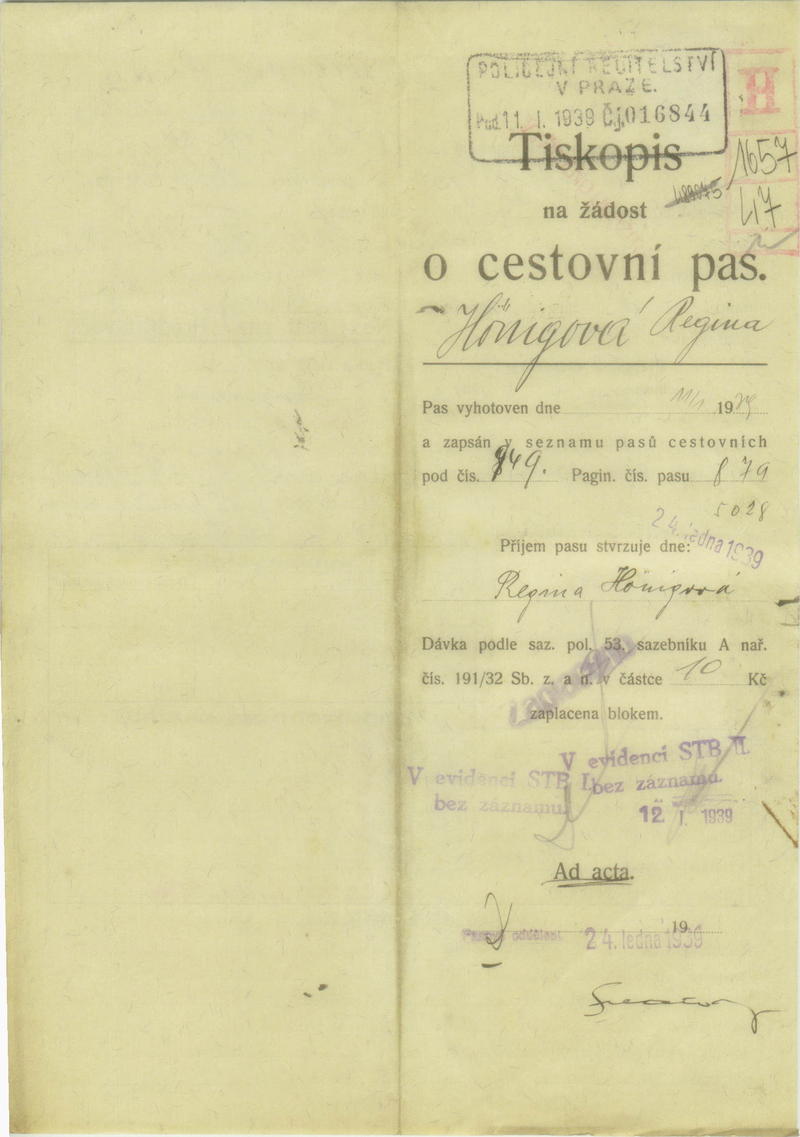 POLICEJNÍ ŘEDITELSTVÍ
V PRAZE.
Pod. 11. I. 1939 Čj. 016844
H
1657
47
Tiskopis
na žádost
o cestovní pas.
Hönigová Regina
Pas vyhotoven dne 11/1 1939
a zapsán v seznamu pasů cestovních
pod čís. 849. Pagin. čís. pasu 879
5028
24. ledna 1939
Příjem pasu stvrzuje dne:
Regina Hönigová
Dávka podle saz. pol. 53. sazebníku A nař.
čís. 191/32 Sb. z. a n. v částce 10 Kč
zaplacena blokem.
V evidenci STB II.
bez záznamu.
V evidenci STB I.
bez záznamu.
12. I. 1939
Ad acta.
19
24. ledna 1939